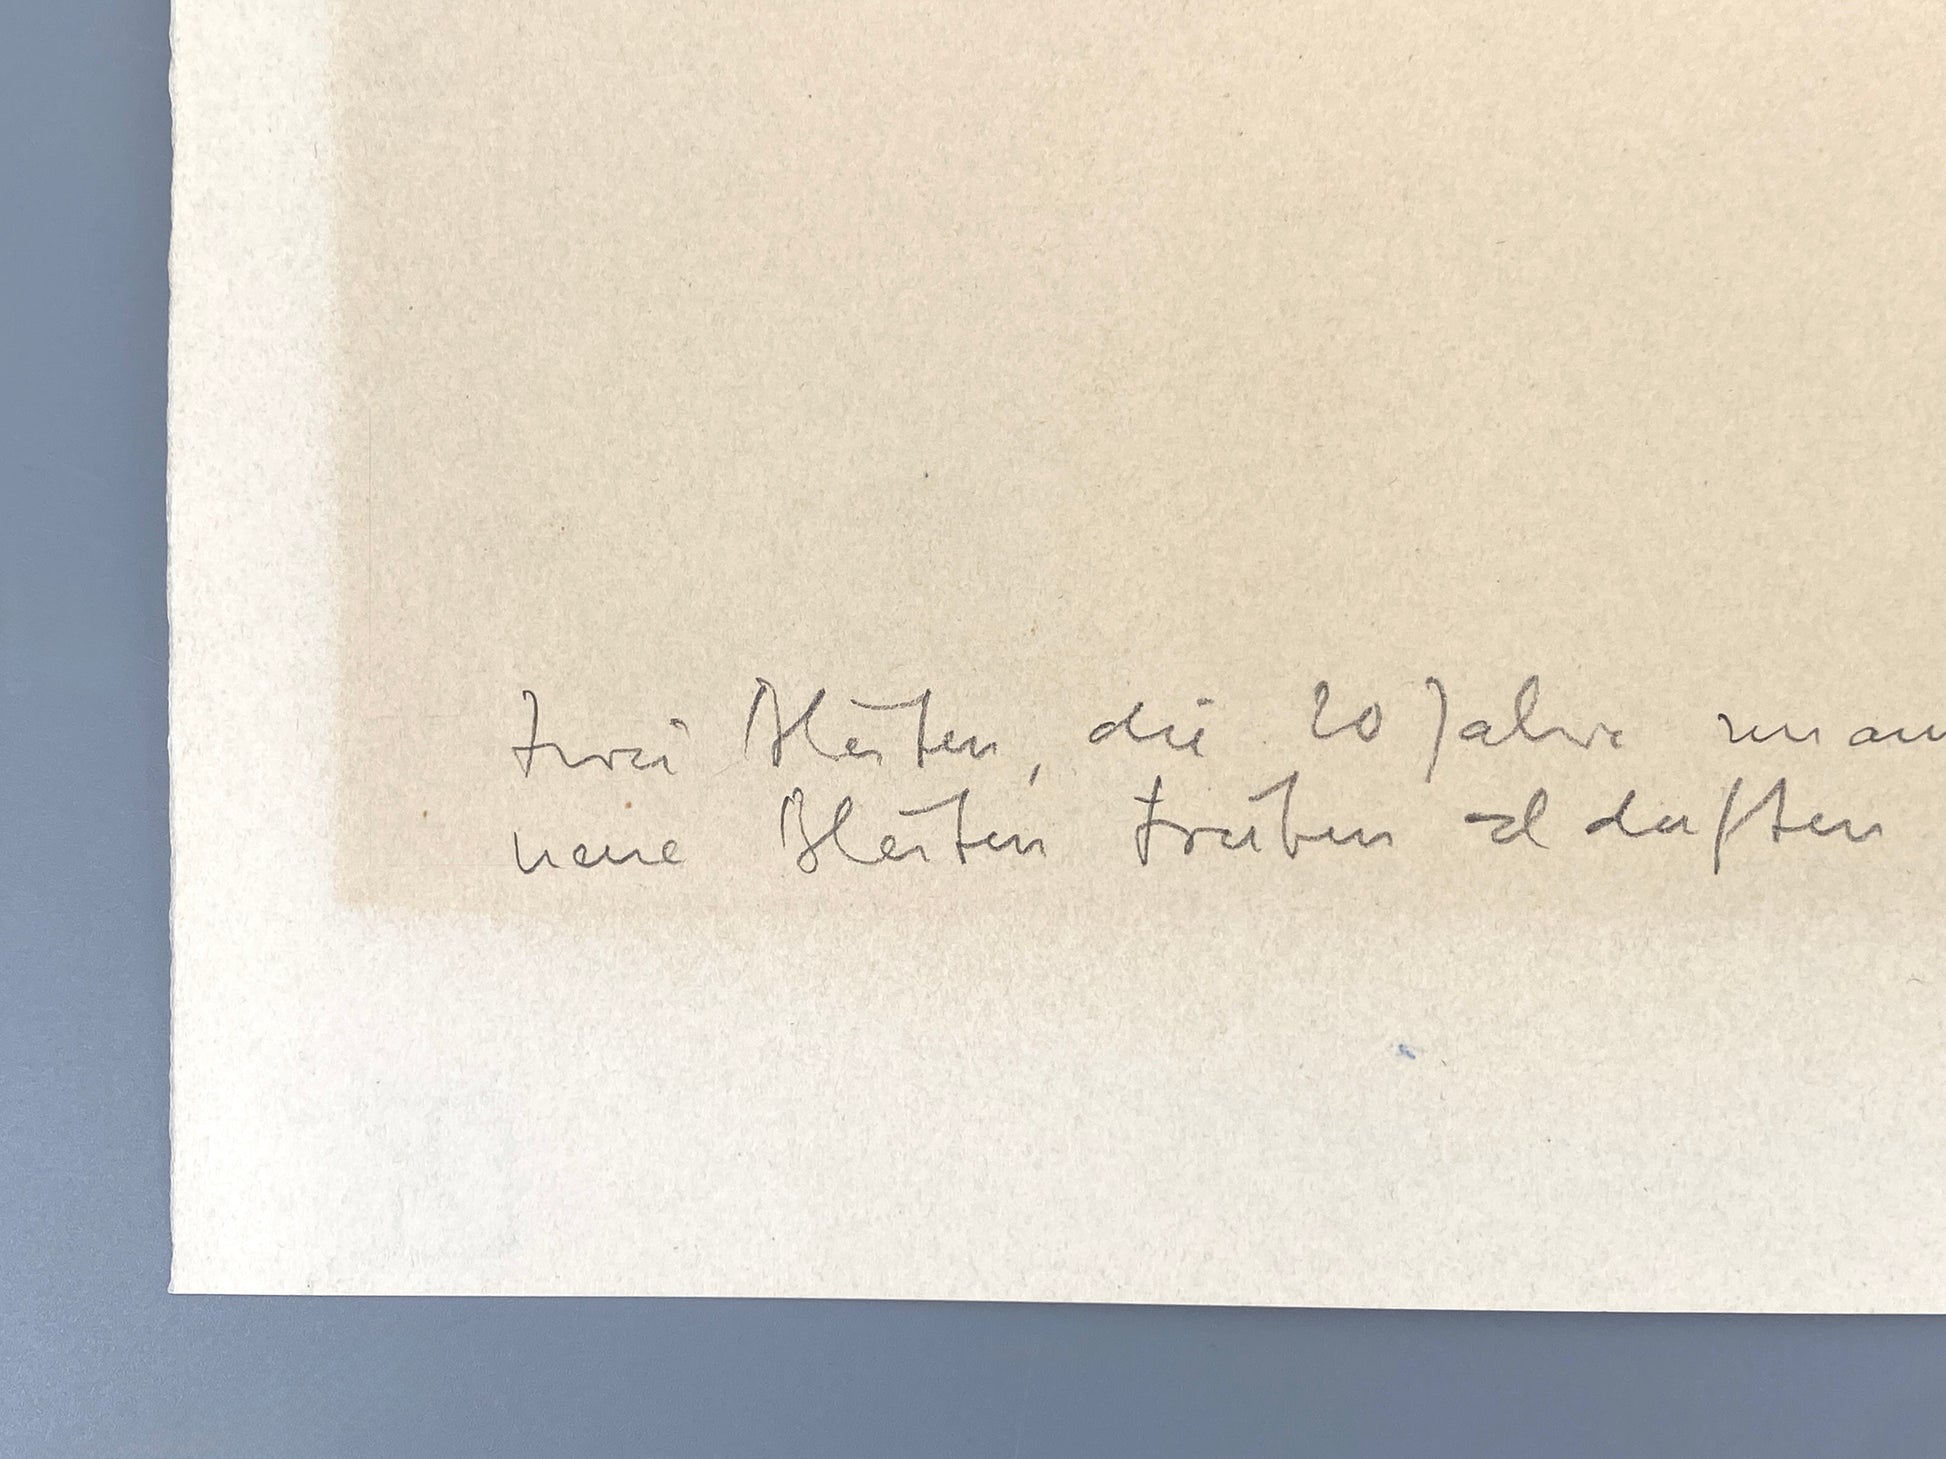 zwei Blüten, die 20 Jahre
neue Blüten trieben und duften